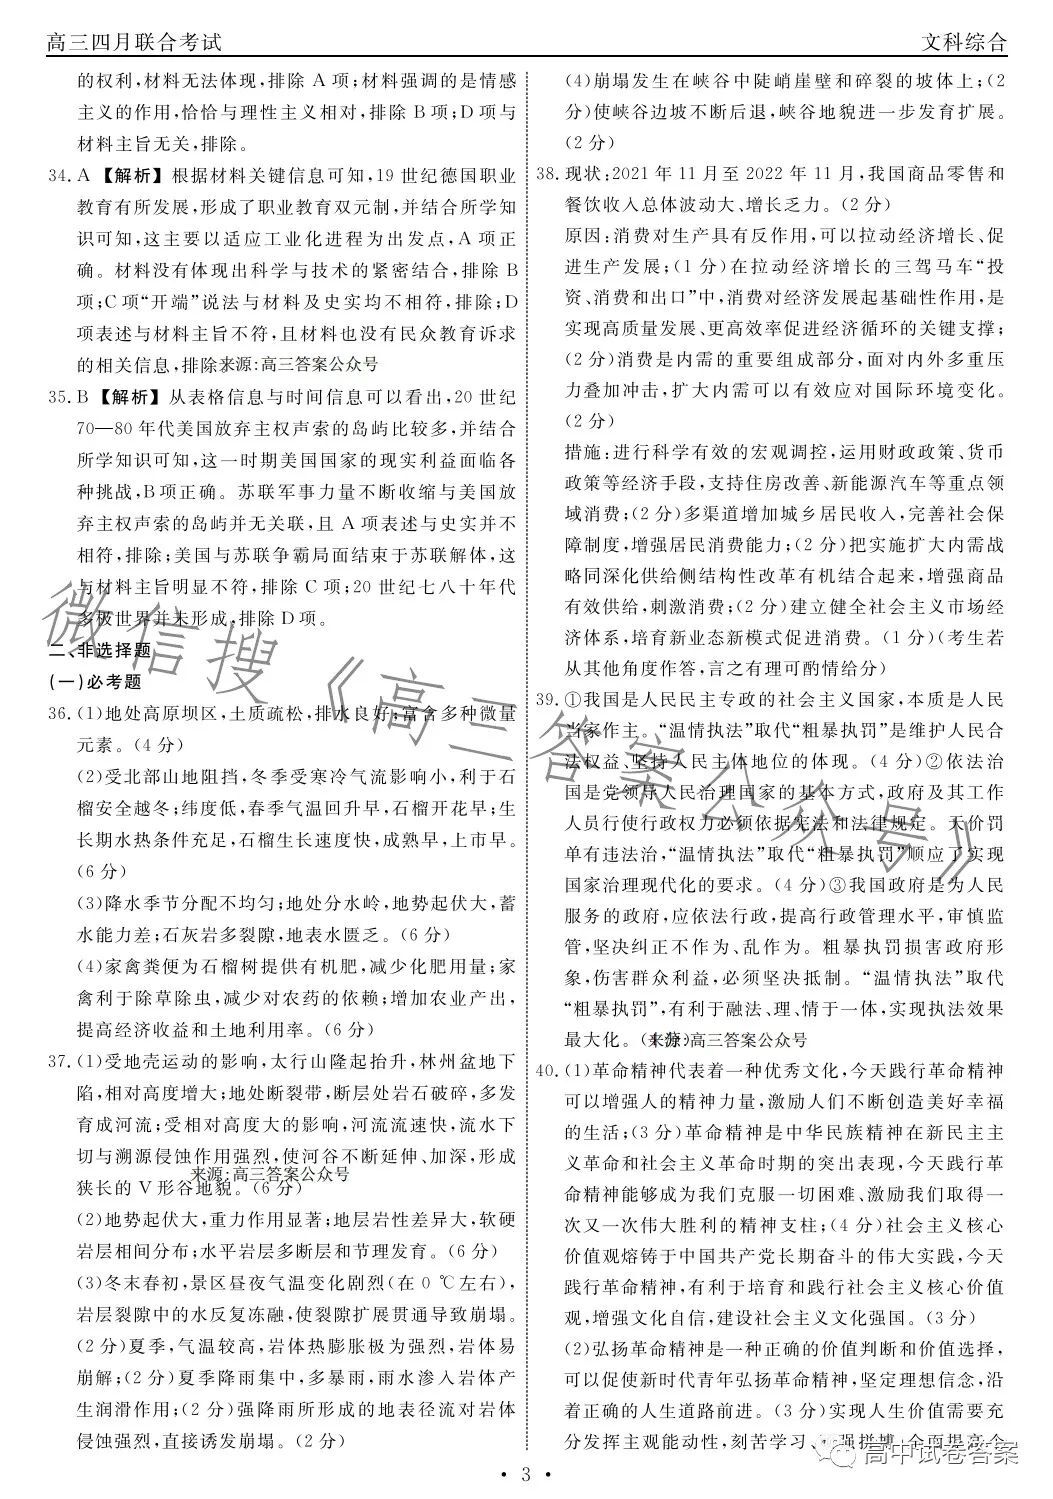 高三四月联合考试
文科综合
的权利,材料无法体现,排除 A 项;材料强调的是情感
主义的作用,恰恰与理性主义相对,排除 B 项;D 项与
材料主旨无关,排除。
34. A 【解析】根据材料关键信息可知,19 世纪德国职业
教育有所发展,形成了职业教育双元制,并结合所学知
识可知,这主要以适应工业化进程为出发点,A 项正
确。材料没有体现出科学与技术的紧密结合,排除 B
项;C 项“开端”说法与材料及史实均不相符,排除;D
项表述与材料主旨不符,且材料也没有民众教育诉求
的相关信息,排除来源:高三答案公众号
35. B 【解析】从表格信息与时间信息可以看出,20 世纪
70—80 年代美国放弃主权声索的岛屿比较多,并结合
所学知识可知,这一时期美国国家的现实利益面临各
种挑战,B项正确。苏联军事力量不断收缩与美国放
弃主权声索的岛屿并无关联,且 A 项表述与史实并不
相符,排除;美国与苏联争霸局面结束于苏联解体,这
与材料主旨明显不符,排除 C 项;20 世纪七八十年代
多极世界并未形成,排除 D 项。
二、非选择题
(一)必考题
36. (1)地处高原坝区,土质疏松,排水良好;富含多种微量
元素。(4 分)
(2)受北部山地阻挡,冬季受寒冷气流影响小,利于石
榴安全越冬;纬度低,春季气温回升早,石榴开花早;生
长期水热条件充足,石榴生长速度快,成熟早,上市早。
(6 分)
(3)降水季节分配不均匀;地处分水岭,地势起伏大,蓄
水能力差;石灰岩多裂隙,地表水匮乏。(6 分)
(4)家禽粪便为石榴树提供有机肥,减少化肥用量;家
禽利于除草除虫,减少对农药的依赖;增加农业产出,
提高经济收益和土地利用率。(6 分)
37. (1)受地壳运动的影响,太行山隆起抬升,林州盆地下
陷,相对高度增大;地处断裂带,断层处岩石破碎,多发
育成河流;受相对高度大的影响,河流流速快,流水下
切与溯源侵蚀作用强烈,使河谷不断延伸、加深,形成
来源:高三答案公众号
狭长的 V 形谷地貌。(6 分)
(2)地势起伏大,重力作用显著;地层岩性差异大,软硬
岩层相间分布;水平岩层多断层和节理发育。(6 分)
(3)冬末春初,景区昼夜气温变化剧烈(在 0 ℃左右),
岩层裂隙中的水反复冻融,使裂隙扩展贯通导致崩塌。
(2 分)夏季,气温较高,岩体热膨胀极为强烈,岩体易
崩解;(2 分)夏季降雨集中,多暴雨,雨水渗入岩体产
生润滑作用;(2 分)强降雨所形成的地表径流对岩体
侵蚀强烈,直接诱发崩塌。(2 分)
(4)崩塌发生在峡谷中陡峭崖壁和碎裂的坡体上;(2
分)使峡谷边坡不断后退,峡谷地貌进一步发育扩展。
(2 分)
38. 现状:2021 年 11 月至 2022 年 11 月,我国商品零售和
餐饮收入总体波动大、增长乏力。(2 分)
原因:消费对生产具有反作用,可以拉动经济增长、促
进生产发展;(1 分)在拉动经济增长的三驾马车“投
资、消费和出口”中,消费对经济发展起基础性作用,是
实现高质量发展、更高效率促进经济循环的关键支撑;
(2 分)消费是内需的重要组成部分,面对内外多重压
力叠加冲击,扩大内需可以有效应对国际环境变化。
(2 分)
措施:进行科学有效的宏观调控,运用财政政策、货币
政策等经济手段,支持住房改善、新能源汽车等重点领
域消费;(2 分)多渠道增加城乡居民收入,完善社会保
障制度,增强居民消费能力;(2 分)把实施扩大内需战
略同深化供给侧结构性改革有机结合起来,增强商品
有效供给,刺激消费;(2 分)建立健全社会主义市场经
济体系,培育新业态新模式促进消费。(1 分)(考生若
从其他角度作答,言之有理可酌情给分)
39. ①我国是人民民主专政的社会主义国家,本质是人民
当家作主。“温情执法”取代“粗暴执罚”是维护人民合
法权益、坚持人民主体地位的体现。(4 分)②依法治
国是党领导人民治理国家的基本方式,政府及其工作
人员行使行政权力必须依据宪法和法律规定。天价罚
单有违法治,“温情执法”取代“粗暴执罚”顺应了实现
国家治理现代化的要求。(4 分)③我国政府是为人民
服务的政府,应依法行政,提高行政管理水平,审慎监
管,坚决纠正不作为、乱作为。粗暴执罚损害政府形
象,伤害群众利益,必须坚决抵制。“温情执法”取代
“粗暴执罚”,有利于融法、理、情于一体,实现执法效果
最大化。(来源:高三答案公众号
40. (1)革命精神代表着一种优秀文化,今天践行革命精神
可以增强人的精神力量,激励人们不断创造美好幸福
的生活;(3 分)革命精神是中华民族精神在新民主主
义革命和社会主义革命时期的突出表现,今天践行革
命精神能够成为我们克服一切困难、激励我们取得一
次又一次伟大胜利的精神支柱;(4 分)社会主义核心
价值观熔铸于中国共产党长期奋斗的伟大实践,今天
践行革命精神,有利于培育和践行社会主义核心价值
观,增强文化自信,建设社会主义文化强国。(3 分)
(2)弘扬革命精神是一种正确的价值判断和价值选择,
可以促使新时代青年弘扬革命精神,坚定理想信念,沿
着正确的人生道路前进。(3 分)实现人生价值需要充
分发挥主观能动性,刻苦学习、强拼搏,全面提高个
微信搜《高三答案公众号》
高中试卷答案
• 3 •